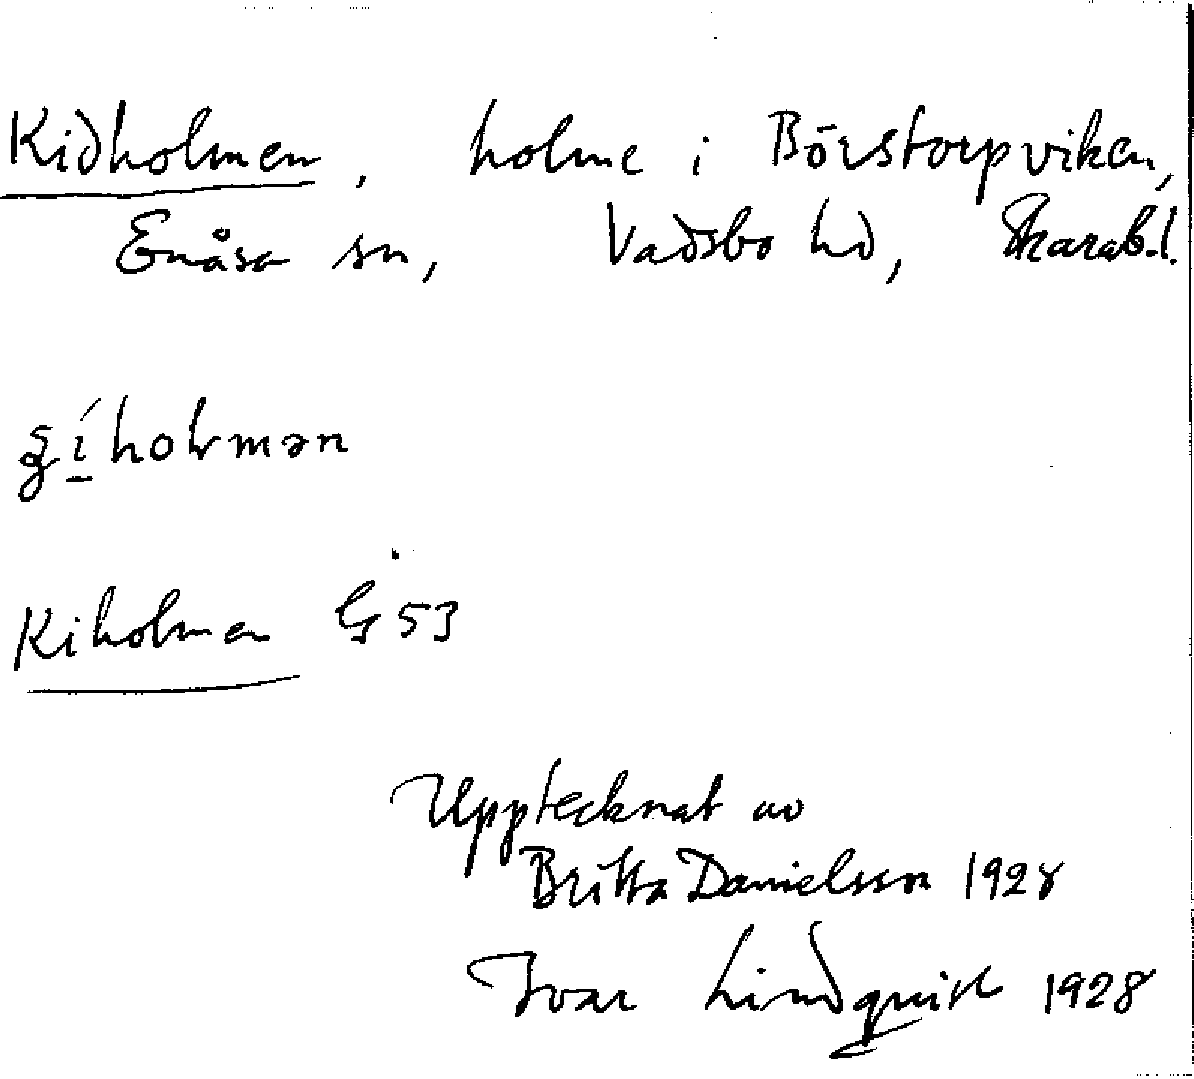 Kidholmen, holme i Börstorpviken,
Enåsa sn, Vadsbo hd, Skarab.l.
Kiholmen G 53
Upptecknat av
Britta Danielsson 1928
Ivar Lindquist 1928